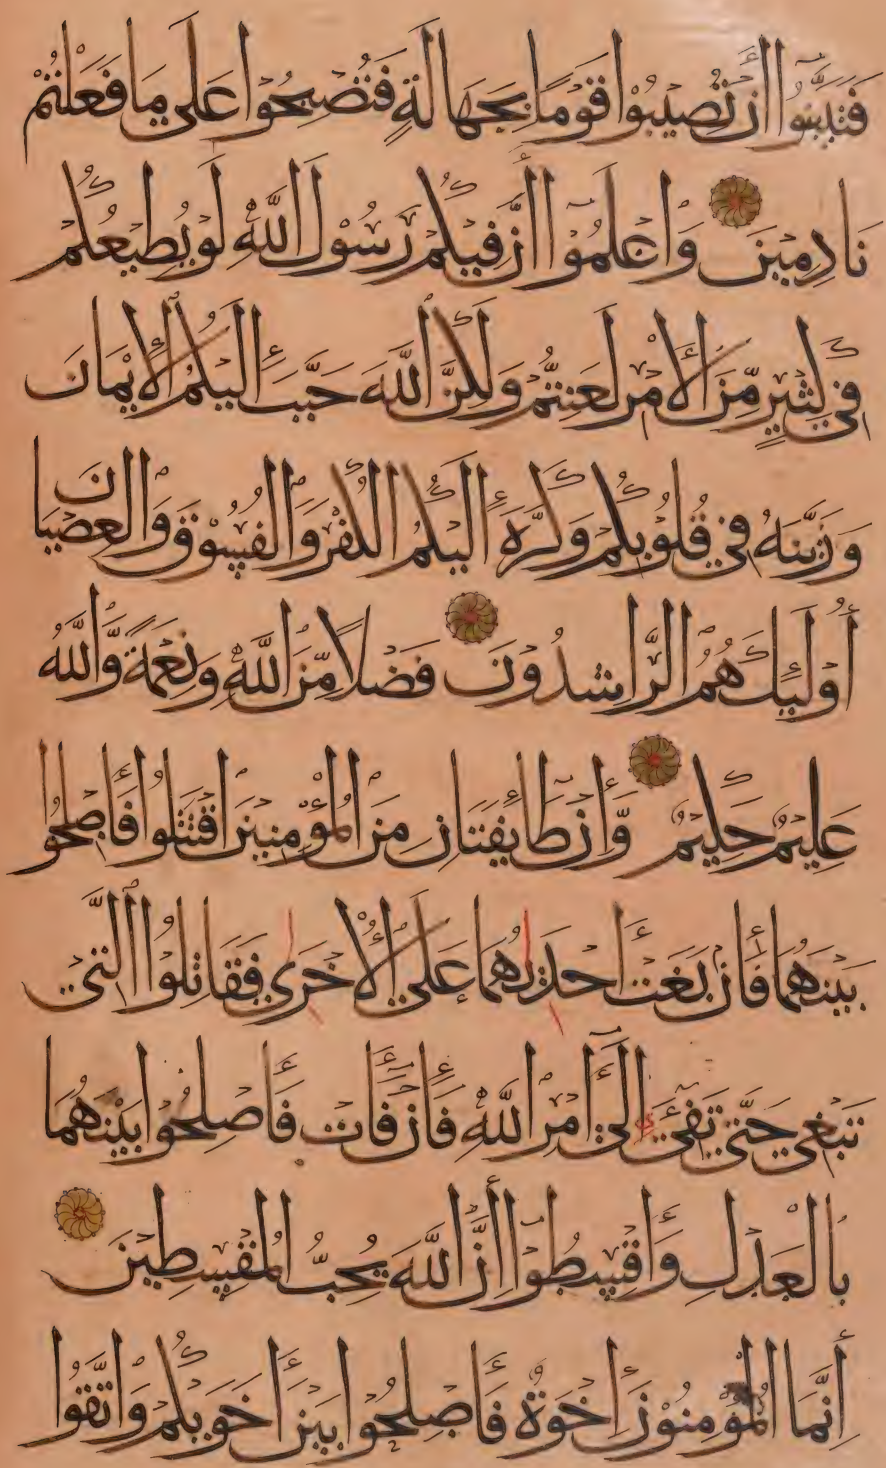 فَتَبَيَّنُوا أَنْ تُصِيبُوا قَوْمًا بِجَهَالَةٍ فَتُصْبِحُوا عَلَى مَا فَعَلْتُمْ
نَادِمِينَ وَاعْلَمُوا أَنَّ فِيكُمْ رَسُولَ اللَّهِ لَوْ يُطِيعُكُمْ
فِي كَثِيرٍ مِّنَ الْأَمْرِ لَعَنِتُّمْ وَلَكِنَّ اللَّهَ حَبَّبَ إِلَيْكُمُ الْإِيمَانَ
وَزَيَّنَهُ فِي قُلُوبِكُمْ وَكَرَّهَ إِلَيْكُمُ الْكُفْرَ وَالْفُسُوقَ وَالْعِصْيَانَ
أُولَئِكَ هُمُ الرَّاشِدُونَ فَضْلًا مِّنَ اللَّهِ وَنِعْمَةً وَّاللَّهُ
عَلِيمٌ حَكِيمٌ وَّإِنْ طَائِفَتَانِ مِنَ الْمُؤْمِنِينَ اقْتَتَلُوا فَأَصْلِحُوا
بَيْنَهُمَا فَإِنْ بَغَتْ إِحْدَىهُمَا عَلَى الْأُخْرَى فَقَاتِلُوا الَّتِي
تَبْغِي حَتَّى تَفِيءَ إِلَى أَمْرِ اللَّهِ فَإِنْ فَاءَتْ فَأَصْلِحُوا بَيْنَهُمَا
بِالْعَدْلِ وَأَقْسِطُوا إِنَّ اللَّهَ يُحِبُّ الْمُقْسِطِينَ
إِنَّمَا الْمُؤْمِنُونَ إِخْوَةٌ فَأَصْلِحُوا بَيْنَ أَخَوَيْكُمْ وَاتَّقُوا